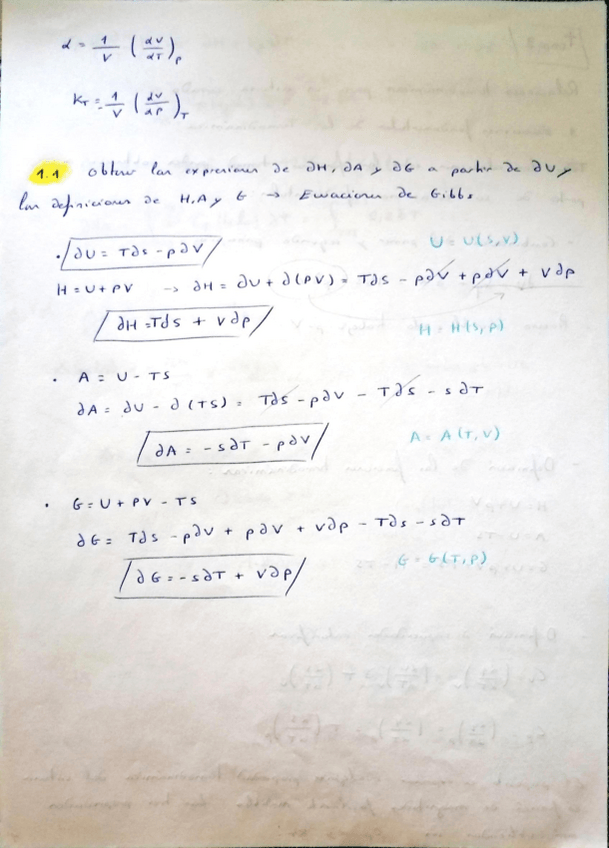 α = 1/V (dV/dT)p
KT = 1/V (dV/dP)T
1.1 Obtener las expresiones de ∂H, ∂A y ∂G a partir de ∂U y
las definiciones de H, A y G → Ecuaciones de Gibbs
· ∂U = T∂S - p∂V
U = U(S,V)
H = U + PV → ∂H = ∂U + ∂(PV) = T∂S - p∂V + p∂V + V∂p
∂H = T∂S + V∂p
H = H(S,P)
· A = U - TS
∂A = ∂U - ∂(TS) = T∂S - p∂V - T∂S - S∂T
∂A = -S∂T - p∂V
A = A(T,V)
· G = U + PV - TS
∂G = T∂S - p∂V + p∂V + V∂p - T∂S - S∂T
∂G = -S∂T + V∂p
G = G(T,P)